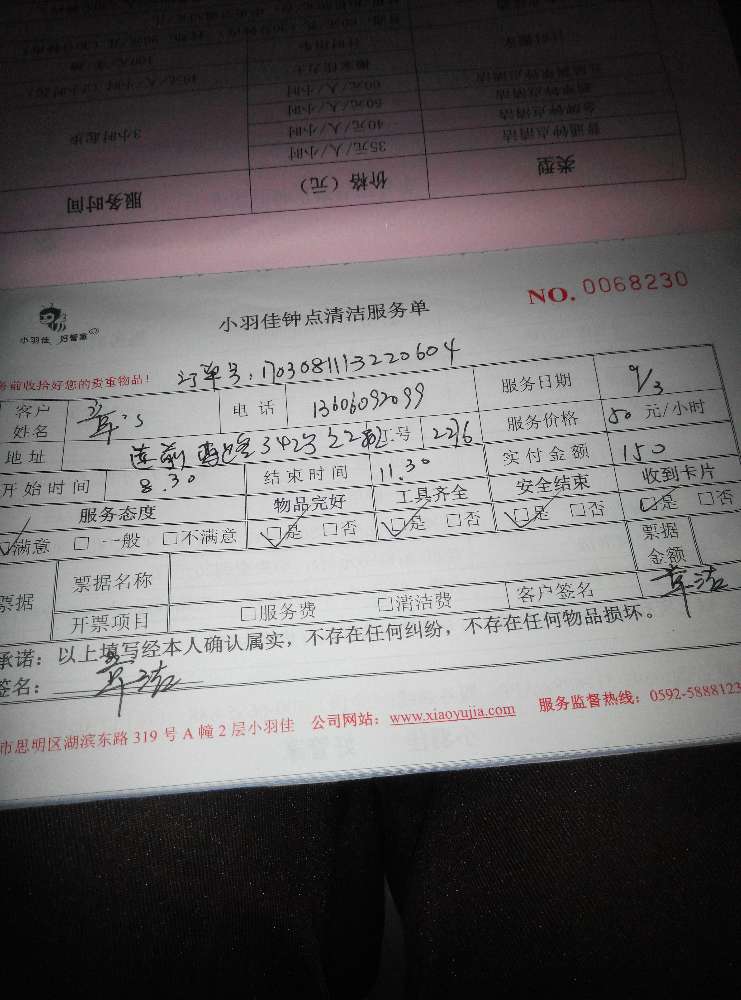 类型 价格（元） 服务时间
普通钟点清洁 35元/人/小时 3小时起步
金牌钟点清洁 40元/人/小时
50元/人/小时
60元/人/小时
NO. 0068230
小羽佳 好管家
小羽佳钟点清洁服务单
前收拾好您的贵重物品！ 订单号：1703081113220604
客户姓名 电话 13606092099 服务日期 9/3
地址 莲前 342号之2 号 2216 服务价格 50 元/小时
开始时间 8.30 结束时间 11.30 实付金额 150
服务态度 物品完好 工具齐全 安全结束 收到卡片
□满意 □一般 □不满意 □是 □否 □是 □否 □是 □否 □是 □否
票据 票据名称 票据金额
开票项目 □服务费 □清洁费 客户签名
承诺：以上填写经本人确认属实，不存在任何纠纷，不存在任何物品损坏。
签名：
市思明区湖滨东路319号A幢2层小羽佳 公司网站：www.xiaoyujia.com 服务监督热线：0592-5888123